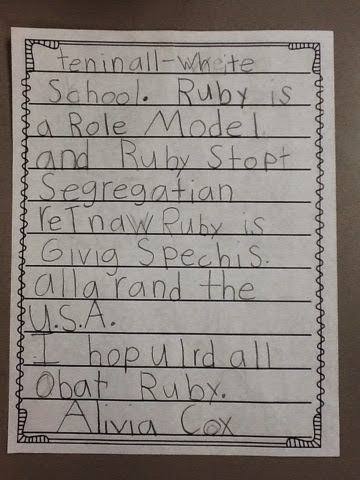 teninall-wheite
School. Ruby is
a Role Model
and Ruby Stopt
Segregatian
reTnaw Ruby is
Givig Spechis.
alla rand the
U.S.A.
I hop ulrd all
Obat Ruby.
Alivia Cox